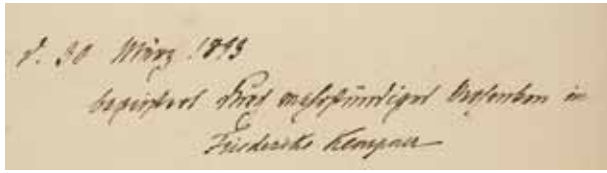 d. 30 März 1893
begeistert durch mehrstündiges Versenken in
Friederike Kempner